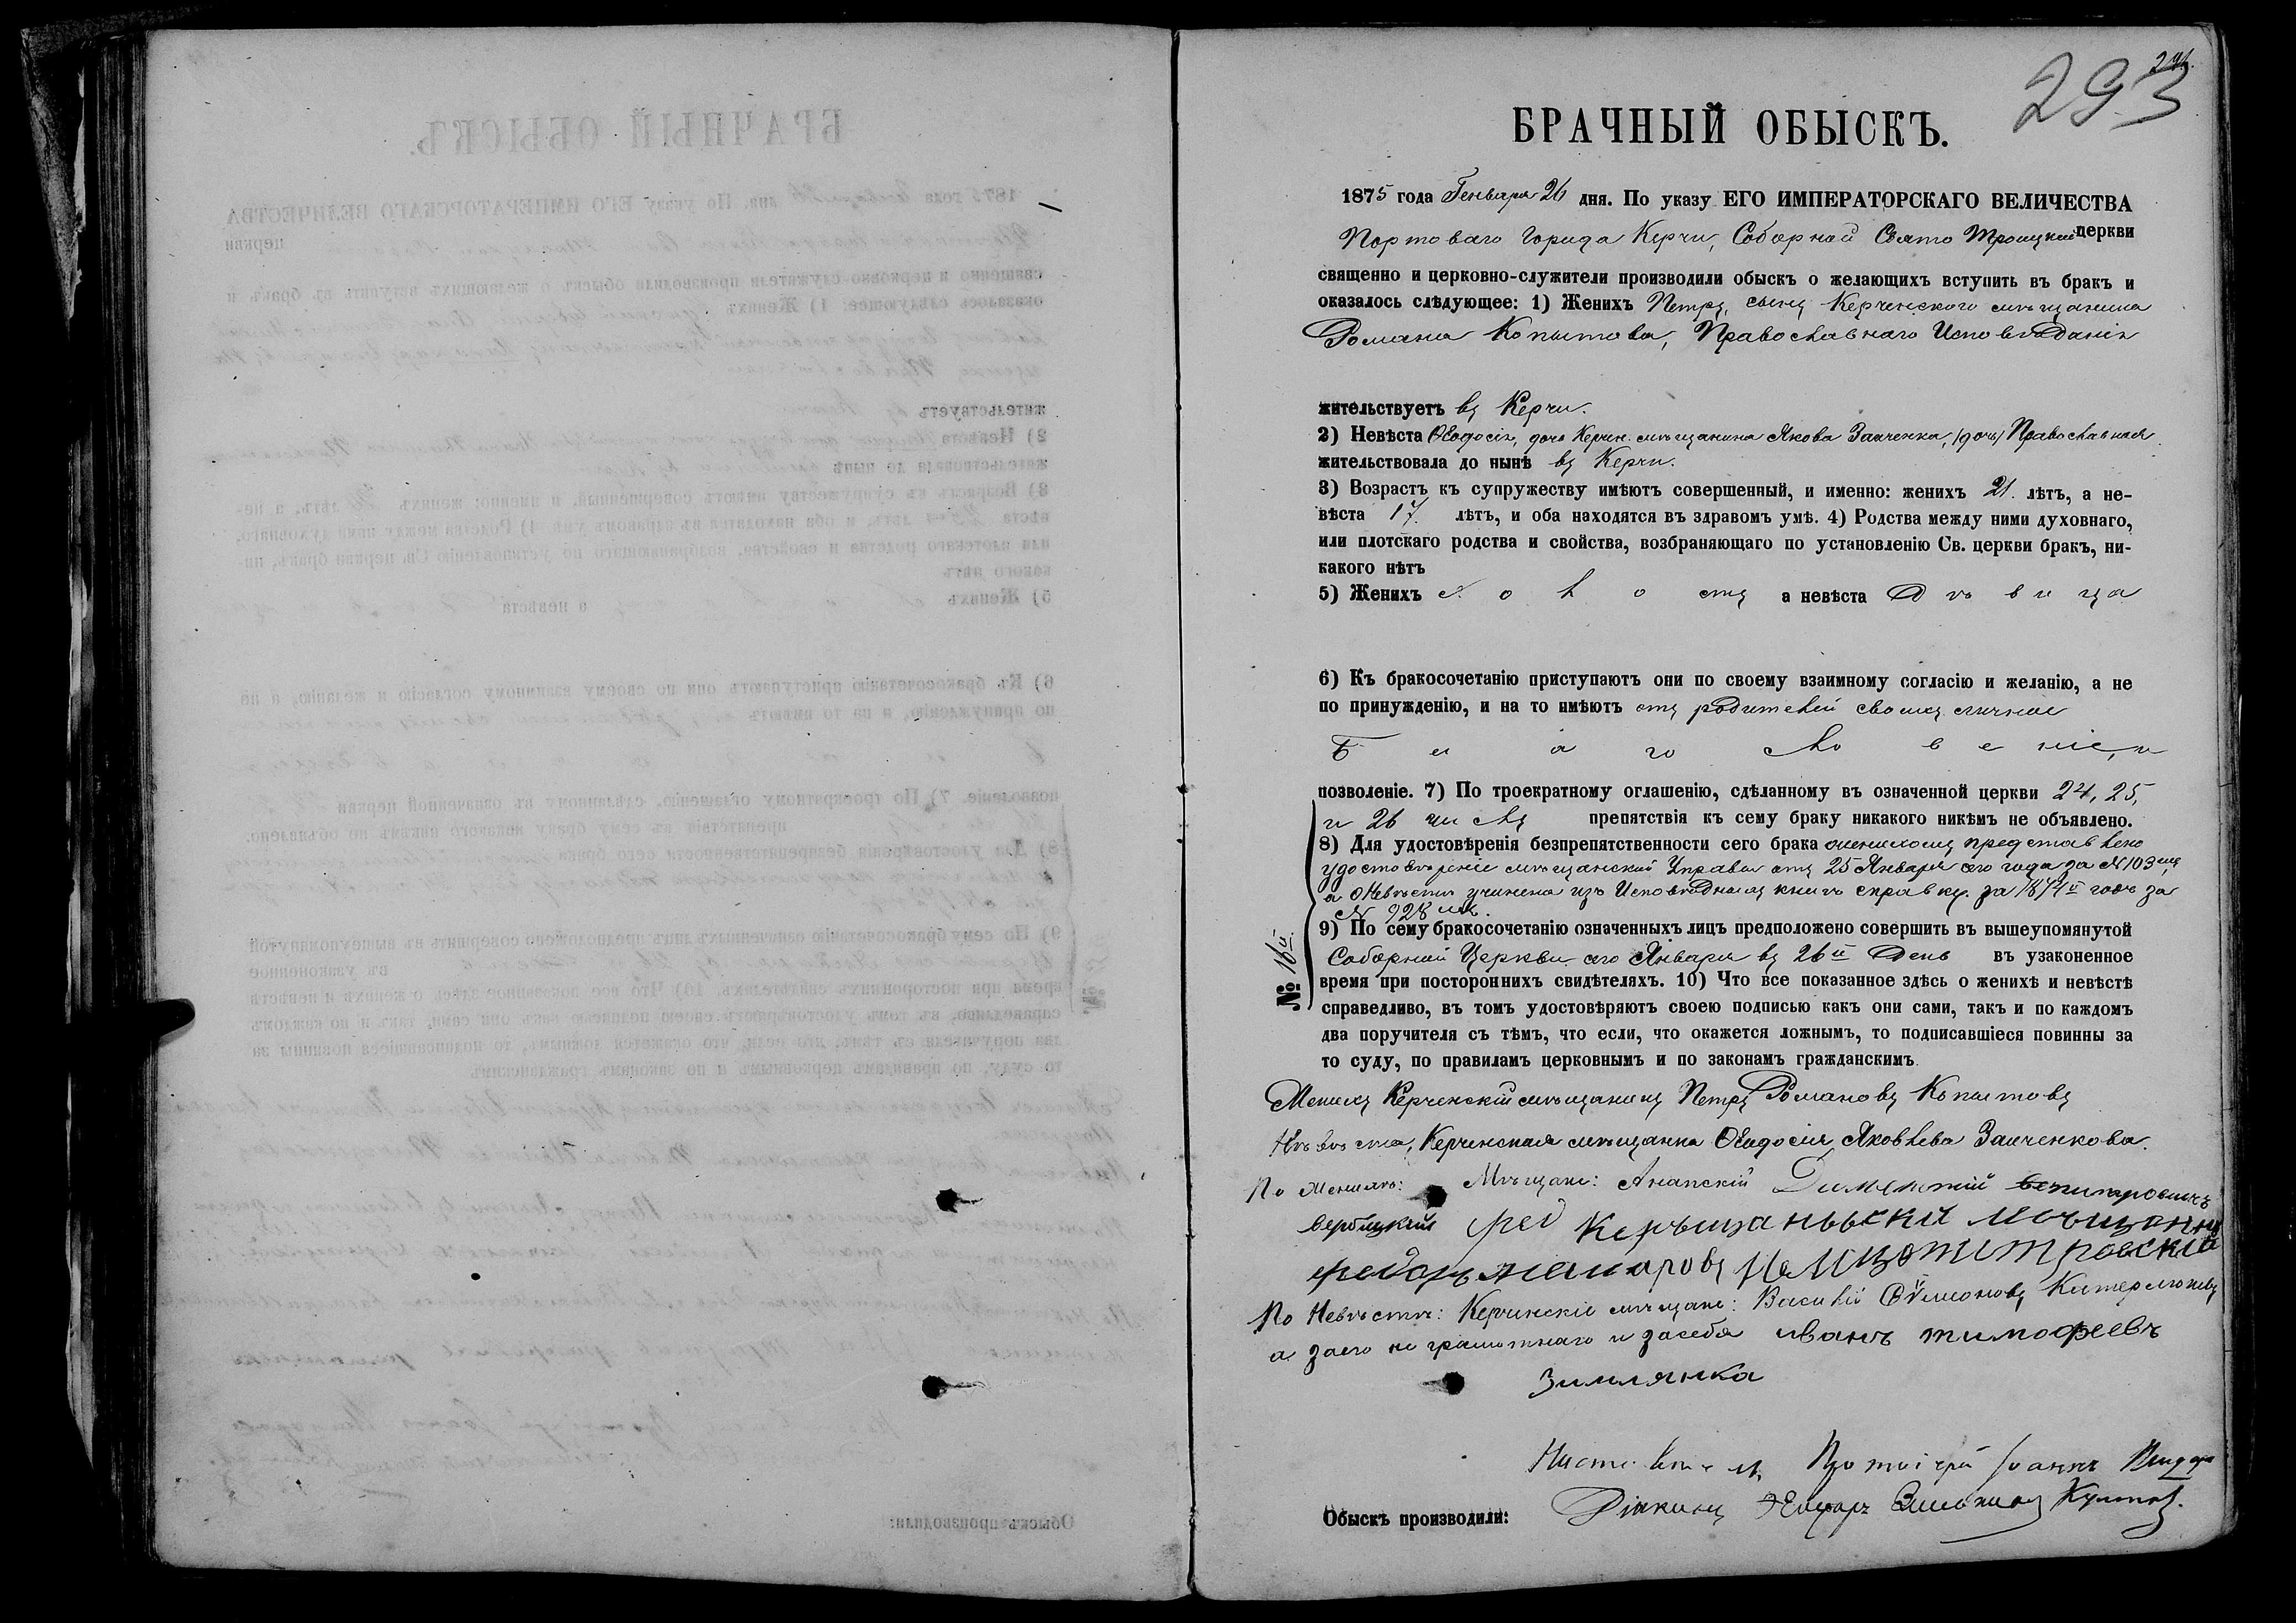 293
БРАЧНЫЙ ОБЫСКЪ.
1875 года Генваря 26 дня. По указу ЕГО ИМПЕРАТОРСКАГО ВЕЛИЧЕСТВА
Портоваго Города Керчи, Соборной Свято Троицкой церкви
священно и церковно-служители производили обыскъ о желающихъ вступить въ бракъ и
оказалось слѣдующее: 1) Женихъ Петръ, сынъ Керченского мѣщанина
Романа Копытова, Православнаго Исповѣданія
жительствуетъ въ Керчи.
2) Невѣста Ѳеодосія, дочь Керчен. мѣщанина Якова Заиченка, (дочь) Православная
жительствовала до нынѣ въ Керчи.
3) Возрастъ къ супружеству имѣютъ совершенный, и именно: женихъ 21. лѣтъ, а не-
вѣста 17. лѣтъ, и оба находятся въ здравомъ умѣ. 4) Родства между ними духовнаго,
или плотскаго родства и свойства, возбраняющаго по установленію Св. церкви бракъ, ни-
какого нѣтъ
5) Женихъ холостъ а невѣста Дѣвица
6) Къ бракосочетанію приступаютъ они по своему взаимному согласію и желанію, а не
по принужденію, и на то имѣютъ отъ родителей своихъ личное
Благословеніе, и
позволеніе. 7) По троекратному оглашенію, сдѣланному въ означенной церкви 24, 25,
и 26 числъ препятствія къ сему браку никакого никѣмъ не объявлено.
8) Для удостовѣренія безпрепятственности сего брака женихомъ представлено
удостовѣреніе мѣщанской Управы отъ 25 Января сего года за № 103 мъ,
а о Невѣстѣ учинена изъ Исповѣдныхъ книгъ справку. за 1874й годъ за
№ 928 мъ.
9) По сему бракосочетанію означенныхъ лицъ предположено совершить въ вышеупомянутой
Соборной Церкви сего Января въ 26й День въ узаконенное
№ 16й.
время при постороннихъ свидѣтеляхъ. 10) Что все показанное здѣсь о женихѣ и невѣстѣ
справедливо, въ томъ удостовѣряютъ своею подписью какъ они сами, такъ и по каждомъ
два поручителя съ тѣмъ, что если, что окажется ложнымъ, то подписавшіеся повинны за
то суду, по правиламъ церковнымъ и по законамъ гражданскимъ
Женихъ Керченскій мѣщанинъ Петръ Романовъ Копытовъ
Нѣвѣста, Керченская мѣщанка Ѳеодосія Яковлева Заиченкова.
По Женихѣ: Мѣщане: Анапскій
вербицкай
По Невѣстѣ: Керченскіе мѣщане: Василій
а заего не грамотнаго и засебя иванъ тимофеевъ
Зимлянка
Протоіерей Іоаннъ
Обыскъ производили: